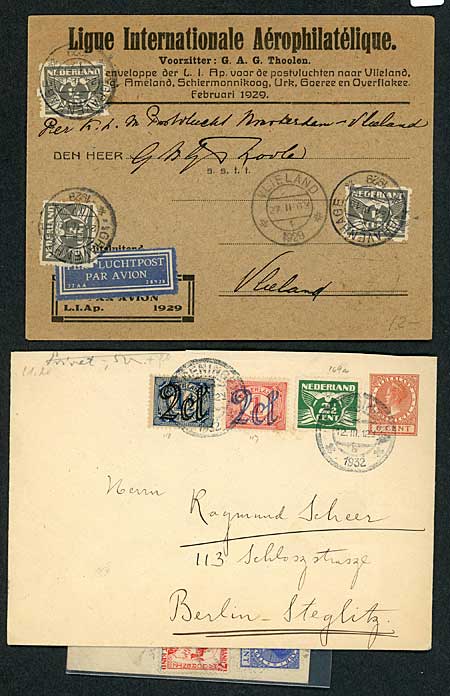 Ligue Internationale Aérophilatélique.
Voorzitter: G. A. G. Thoolen.
enveloppe der L. I. Ap. voor de postvluchten naar Vlieland,
Ameland, Schiermonnikoog, Urk, Goeree en Overflakee.
Februari 1929.
NEDERLAND
Per K. L. M Postvlucht Amsterdam - Vlieland
DEN HEER
s. s. t. t.
VLIELAND
1929
NEDERLAND
1929
NEDERLAND
'S GRAVENHAGE
1929
LUCHTPOST
PAR AVION
PAR AVION
L.I.Ap. 1929
Vlieland
12-
169a
2ct
2ct
NEDERLAND
2½
CENT
6 CENT
1932
12.III.12
1932
Herrn
Raymund Scheer
113 Schloszstrasze
Berlin - Steglitz.